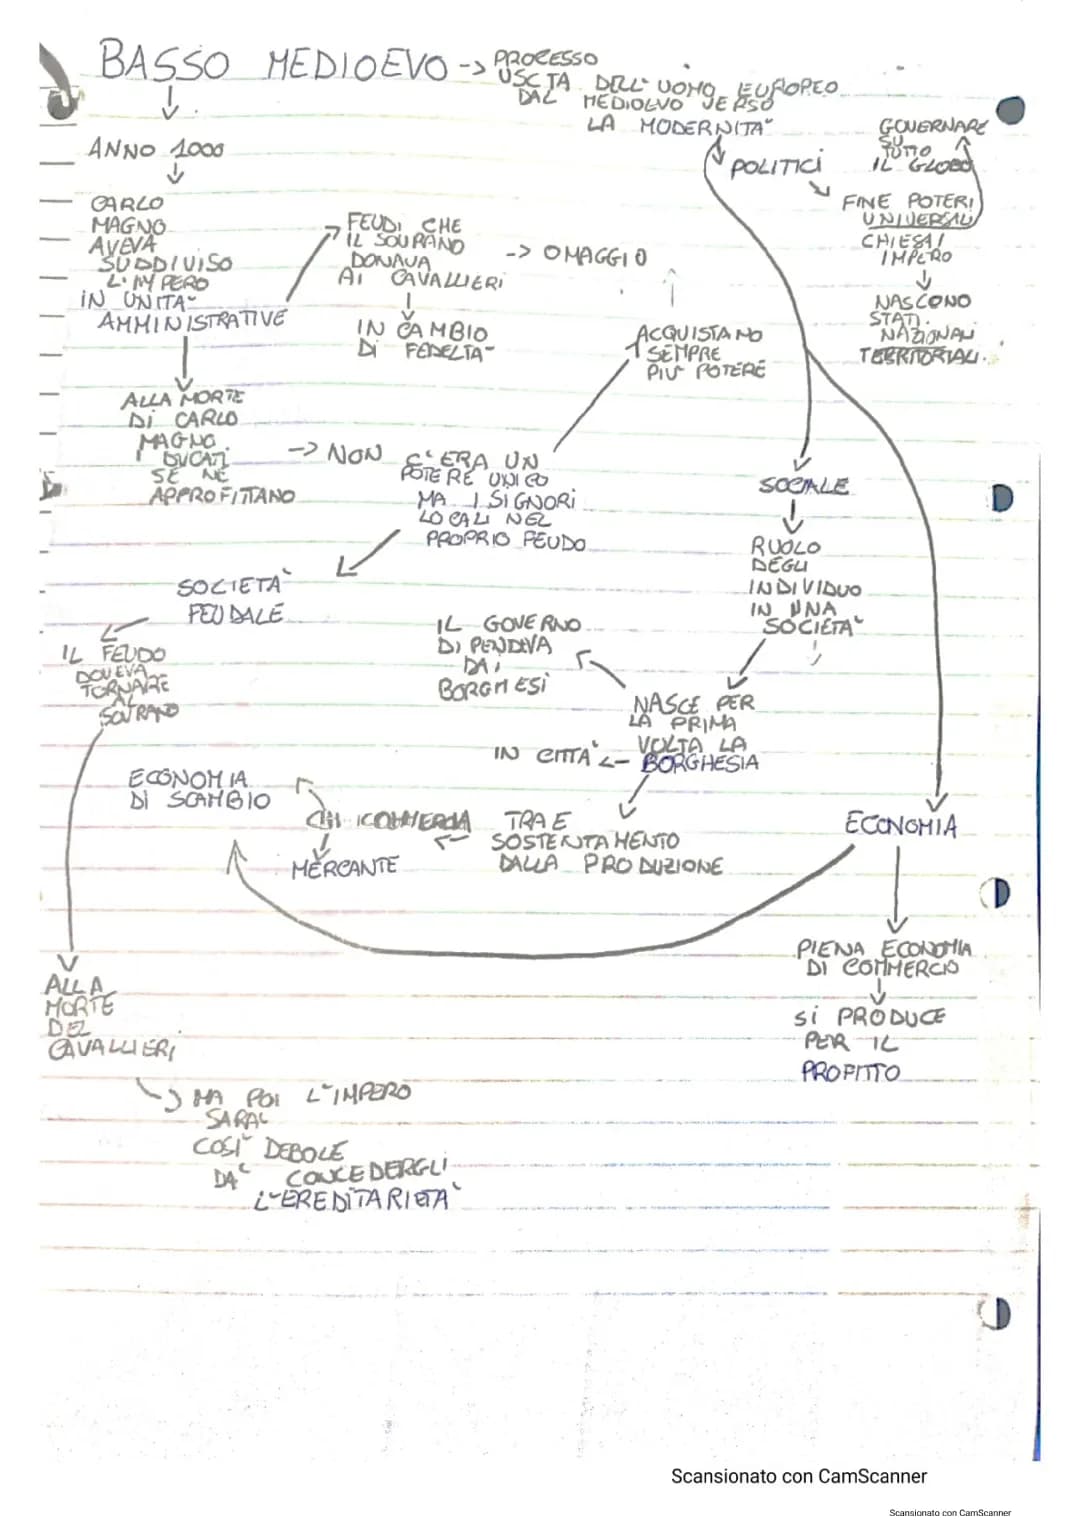 BASSO MEDIOEVO -> PROCESSO
USCTA DELL'UOMO EUROPEO
DAL MEDIOEVO VERSO
LA MODERNITA'
ANNO 1000
CARLO
MAGNO
AVEVA
SUDDIVISO
L'IMPERO
IN UNITA'
AMMINISTRATIVE
FEUDI CHE
IL SOURANO
DONAVA
AI CAVALLIERI
-> OMAGGIO
IN CAMBIO
DI FEDELTA'
POLITICI
GOVERNARE
SU
TUTTO
IL GLOBO
FINE POTERI
UNIVERSALI
CHIESA/
IMPERO
NASCONO
STATI
NAZIONALI
TERRITORIALI.
ACQUISTANO
SEMPRE
PIU' POTERE
ALLA MORTE
DI CARLO
MAGNO
I DUCATI
SE NE
APPROFITTANO
-> NON C'ERA UN
POTERE UNICO
MA I SIGNORI
LOCALI NEL
PROPRIO FEUDO
SOCIETA'
FEUDALE
IL FEUDO
DOVEVA
TORNARE
AL
SOVRANO
SOCIALE
RUOLO
DEGLI
INDIVIDUO
IN UNA
SOCIETA'
IL GOVERNO
DIPENDEVA
DAI
BORGHESI
NASCE PER
LA PRIMA
VOLTA LA
BORGHESIA
IN CITTA' <-
ECONOMIA
DI SCAMBIO
CHI COMMERCIA
MERCANTE
TRAE
SOSTENTAMENTO
DALLA PRODUZIONE
ECONOMIA
PIENA ECONOMIA
DI COMMERCIO
SI PRODUCE
PER IL
PROFITTO
ALLA
MORTE
DEL
CAVALLIERI
MA POI L'IMPERO
SARA'
COSI' DEBOLE
DA' CONCEDERGLI
L'EREDITARIETA'
Scansionato con CamScanner
Scansionato con CamScanner